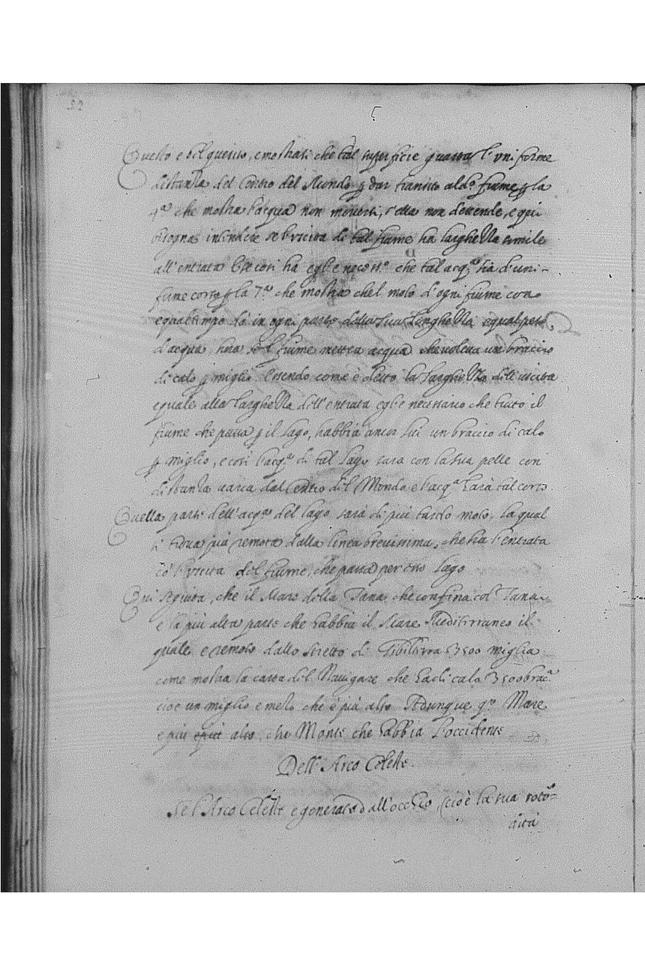 22
Questo e del quinto, e mostrasi che tal superficie guarra l'uniforme
distantia del Centro del Mondo p dar transito al do. fiume p la
4a. che mostra l'acqua non moversi, s'ella non descende, e qui
bisogna intendere se l'uscita di tal fiume ha larghezza simile
all'entrata che così ha egl'è necess.o che tal acq.a hà d'uni-
fiume corso p la 7a. che mostra che'l moto d'ogni fiume con
equal tempo dà in ogni parte della sua larghezza equal peso
d'acqua, ma se'l fiume mettea acqua che voleva un braccio
di calo p miglio essendo come è detto la larghezza dell'uscita
equale alla larghezza dell'entrata egl'è necessario che tutto il
fiume che passa p il lago, habbia ancor lui un braccio di calo
p miglio, e così l'acq.a di tal lago sara con la sua pelle con
distantia varia dal Centro del Mondo e l'acq.a harà tal corso
Quella parte dell'acqua del lago sarà di più tardo moto, la qual
si trova più remota dalla linea brevissima, che ha l'entrata
co l'uscita del fiume, che passa per esso lago
Qui seguita, che il Mare della Tana, che confina col Tanai
e la più alta parte che habbia il Mare Mediterraneo il
quale e remoto dallo stretto di Gibilterra 3500 miglia
come mostra la carta del Navigare che ha di calo 3500 brac.a
cioè un miglio e mezo che è più alto Adunque q.o Mare
e più alto, che Monte che habbia l'occidente
Dell'Arco Celeste.
Se l'Arco Celeste e generato dall'occhio, cioè la sua roto-
dità